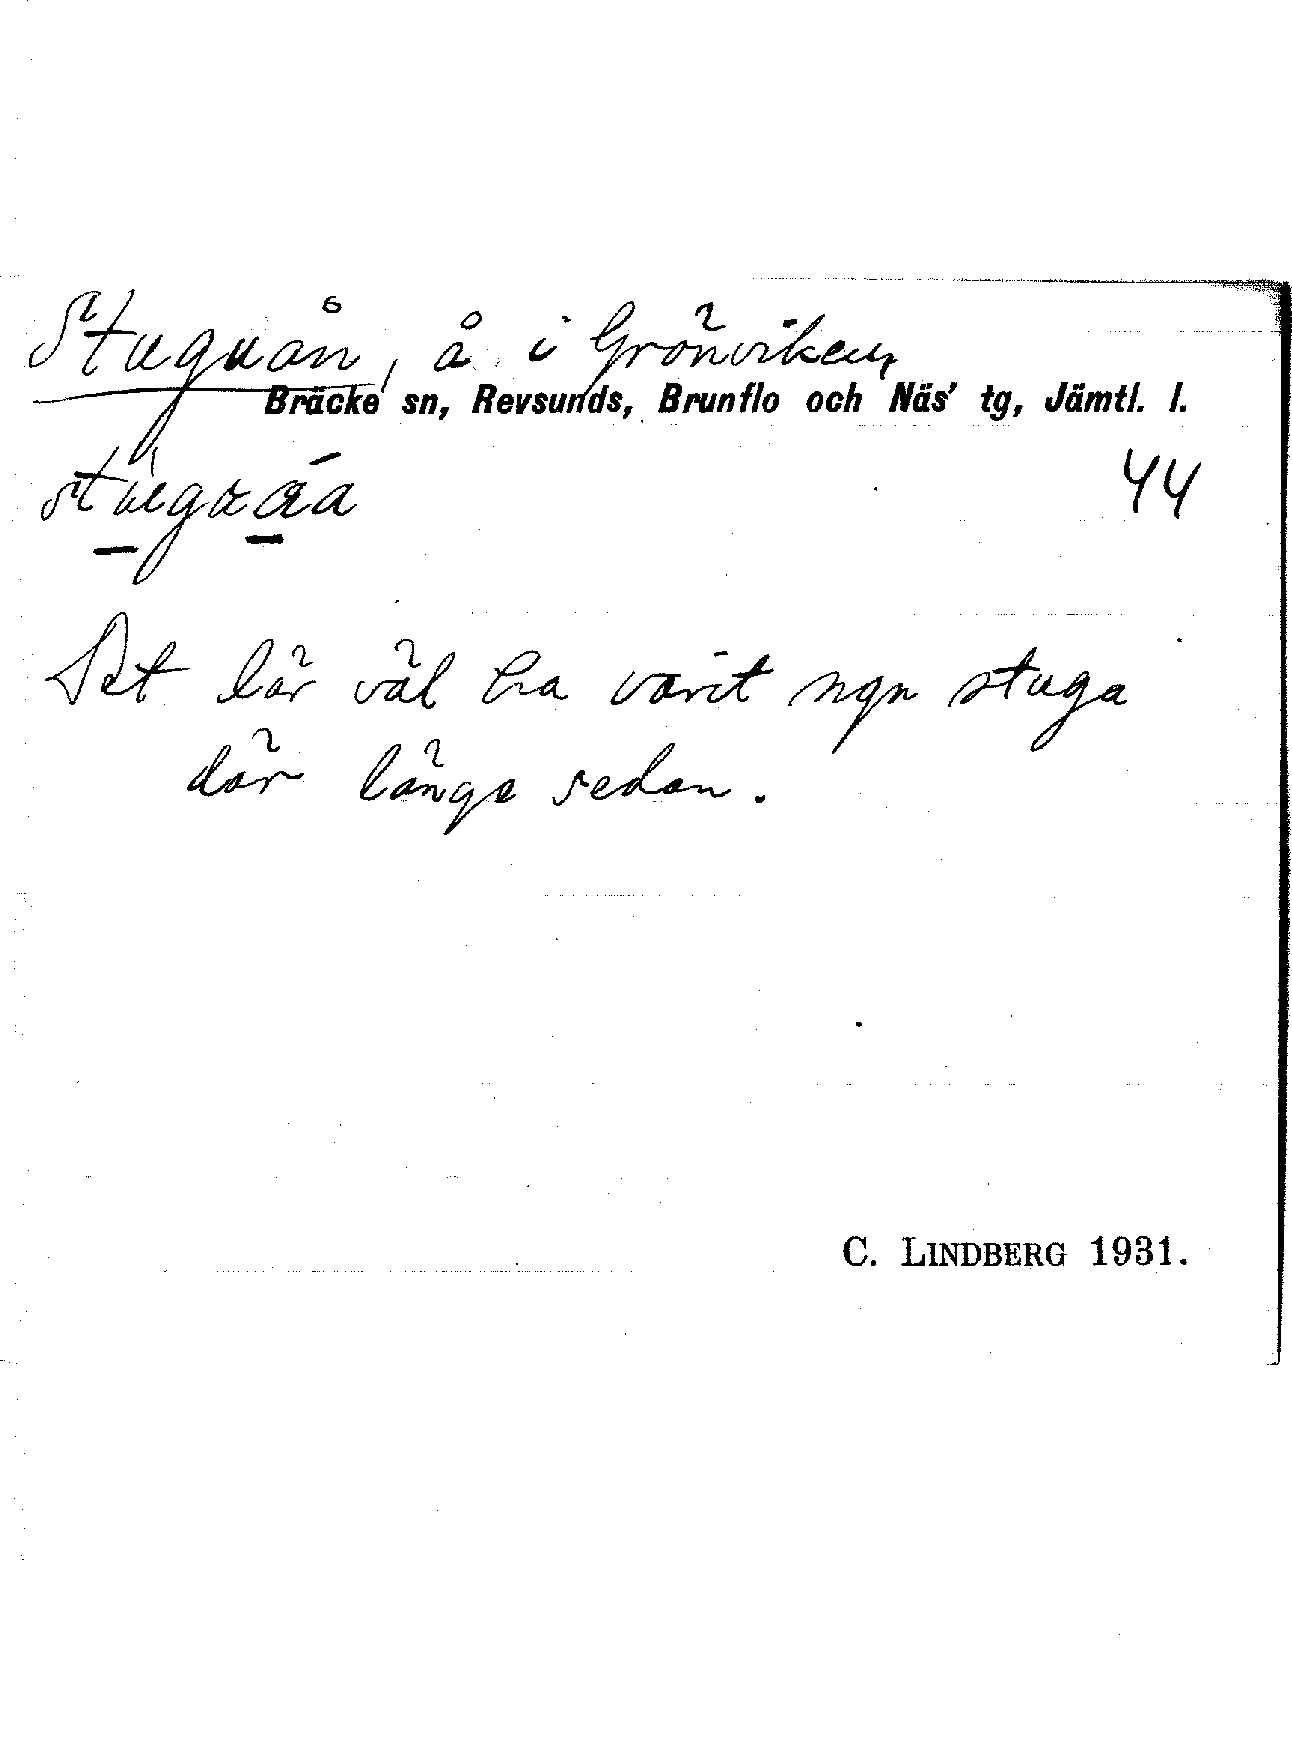 Stuguån, å i Grönviken
Bräcke sn, Revsunds, Brunflo och Näs' tg, Jämtl. l.
44
Det lär väl ha varit ngn stuga
där länge sedan.
C. LINDBERG 1931.